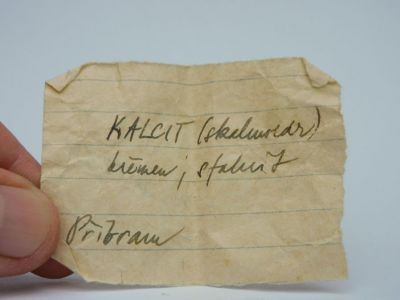 KALCIT (skalenoedr)
křemen; sfalerit
Příbram